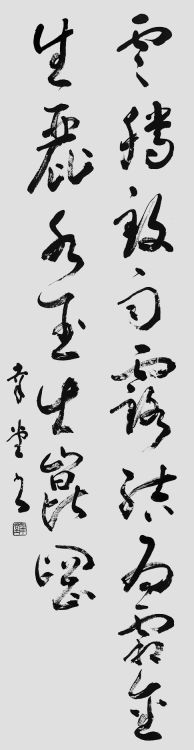 雲騰致雨露結為霜金
生麗水玉出崑岡
幸堂